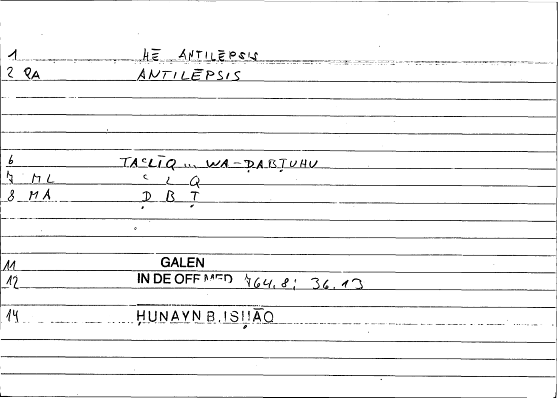 1 HĒ ANTILĒPSIS
2 PA ANTILĒPSIS
6 TAʿLĪQ ... WA-ḌABṬUHU
7 ML ʿ L Q
8 MA Ḍ B Ṭ
11 GALEN
12 IN DE OFF MED 764.8; 36.13
14 ḤUNAYN B. ISḤĀQ